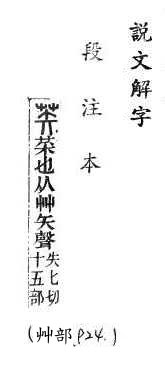 説文解字
段注本
菜也从艸矢聲
失匕切
十五部
(艸部.P24.)